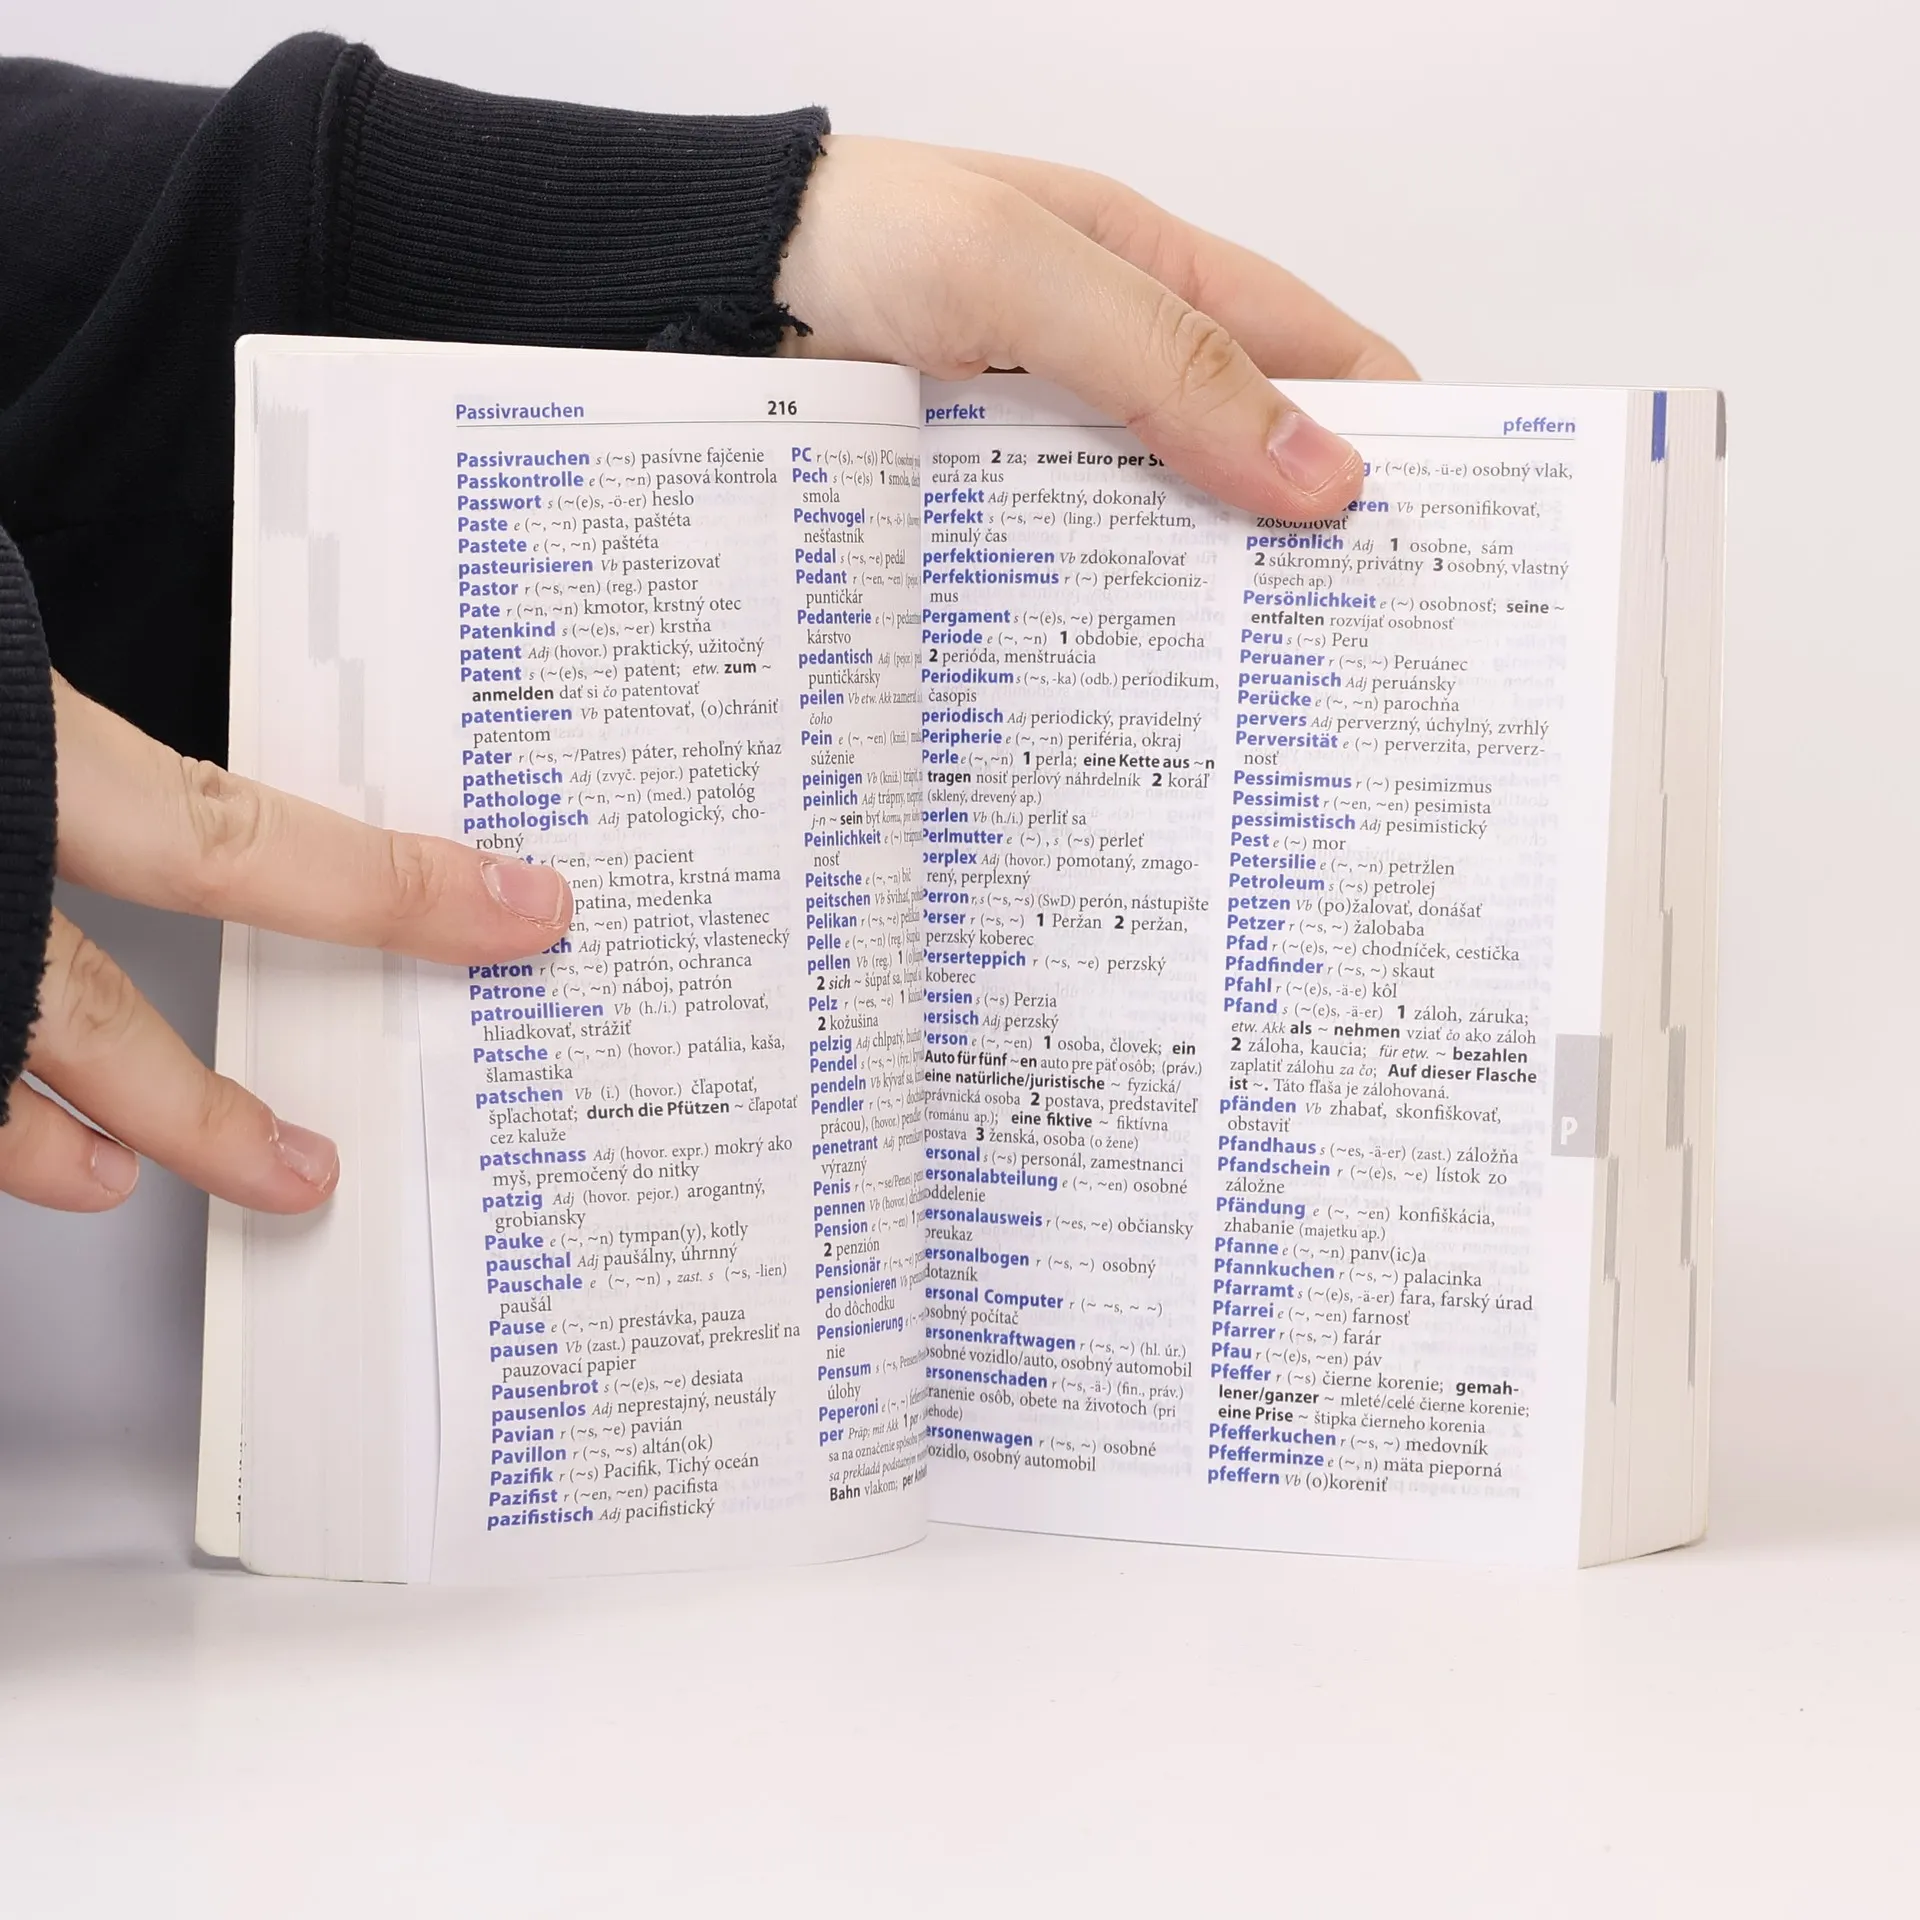 Passivrauchen 216
Passivrauchen s (~s) pasívne fajčenie
Passkontrolle e (~, ~n) pasová kontrola
Passwort s (~(e)s, -ö-er) heslo
Paste e (~, ~n) pasta, paštéta
Pastete e (~, ~n) paštéta
pasteurisieren Vb pasterizovať
Pastor r (~s, ~en) (reg.) pastor
Pate r (~n, ~n) kmotor, krstný otec
Patenkind s (~(e)s, ~er) krstňa
patent Adj (hovor.) praktický, užitočný
Patent s (~(e)s, ~e) patent; etw. zum ~
anmelden dať si čo patentovať
patentieren Vb patentovať, (o)chrániť
patentom
Pater r (~s, ~/Patres) páter, rehoľný kňaz
pathetisch Adj (zvyč. pejor.) patetický
Pathologe r (~n, ~n) (med.) patológ
pathologisch Adj patologický, cho-
robný
r (~en, ~en) pacient
kmotra, krstná mama
patina, medenka
~en) patriot, vlastenec
Adj patriotický, vlastenecký
Patron r (~s, ~e) patrón, ochranca
Patrone e (~, ~n) náboj, patrón
patrouillieren Vb (h./i.) patrolovať,
hliadkovať, strážiť
Patsche e (~, ~n) (hovor.) patália, kaša,
šlamastika
patschen Vb (i.) (hovor.) čľapotať,
špľachotať; durch die Pfützen ~ čľapotať
cez kaluže
patschnass Adj (hovor. expr.) mokrý ako
myš, premočený do nitky
patzig Adj (hovor. pejor.) arogantný,
grobiansky
Pauke e (~, ~n) tympan(y), kotly
pauschal Adj paušálny, úhrnný
Pauschale e (~, ~n) , zast. s (~s, -lien)
paušál
Pause e (~, ~n) prestávka, pauza
pausen Vb (zast.) pauzovať, prekresliť na
pauzovací papier
Pausenbrot s (~(e)s, ~e) desiata
pausenlos Adj neprestajný, neustály
Pavian r (~s, ~e) pavián
Pavillon r (~s, ~s) altán(ok)
Pazifik r (~s) Pacifik, Tichý oceán
Pazifist r (~en, ~en) pacifista
pazifistisch Adj pacifistický
PC r (~(s), ~(s)) PC
Pech s (~(e)s) 1 smola,
smola
Pechvogel r (~s, -ö-)
nešťastník
Pedal s (~s, ~e) pedál
Pedant r (~en, ~en)
puntičkár
Pedanterie e (~)
kárstvo
pedantisch Adj
puntičkársky
peilen Vb etw. Akk
čoho
Pein e (~, ~en) (kniž.)
súženie
peinigen Vb (kniž.)
peinlich Adj trápny,
j-n ~ sein byť
Peinlichkeit e (~)
nosť
Peitsche e (~, ~n) bič
peitschen Vb švihať,
Pelikan r (~s, ~e) pelikán
Pelle e (~, ~n) (reg.)
pellen Vb (reg.) 1
2 sich ~ šúpať sa,
Pelz r (~es, ~e) 1
2 kožušina
pelzig Adj chlpatý,
Pendel s (~s, ~) (fyz.)
pendeln Vb kývať sa,
Pendler r (~s, ~)
prácou), (hovor.)
penetrant Adj
výrazný
Penis r (~, ~se/Penes)
pennen Vb (hovor.)
Pension e (~, ~en) 1
2 penzión
Pensionär r (~s, ~e)
pensionieren Vb
do dôchodku
Pensionierung e
nie
Pensum s (~s,
úlohy
Peperoni e (~, ~)
per Präp; mit Akk 1
sa na označenie spôsobu
sa prekladá
Bahn vlakom;
perfekt pfeffern
stopom 2 za; zwei Euro per
eurá za kus
perfekt Adj perfektný, dokonalý
Perfekt s (~s, ~e) (ling.) perfektum,
minulý čas
perfektionieren Vb zdokonaľovať
Perfektionismus r (~) perfekcioniz-
mus
Pergament s (~(e)s, ~e) pergamen
Periode e (~, ~n) 1 obdobie, epocha
2 perióda, menštruácia
Periodikum s (~s, -ka) (odb.) periodikum,
časopis
periodisch Adj periodický, pravidelný
Peripherie e (~, ~n) periféria, okraj
Perle e (~, ~n) 1 perla; eine Kette aus ~n
tragen nosiť perlový náhrdelník 2 koráľ
(sklený, drevený ap.)
perlen Vb (h./i.) perliť sa
Perlmutter e (~) , s (~s) perleť
perplex Adj (hovor.) pomotaný, zmago-
rený, perplexný
Perron r, s (~s, ~s) (SwD) perón, nástupište
Perser r (~s, ~) 1 Peržan 2 peržan,
perzský koberec
Perserteppich r (~s, ~e) perzský
koberec
Persien s (~s) Perzia
persisch Adj perzský
Person e (~, ~en) 1 osoba, človek; ein
Auto für fünf ~en auto pre päť osôb; (práv.)
eine natürliche/juristische ~ fyzická/
právnická osoba 2 postava, predstaviteľ
(románu ap.); eine fiktive ~ fiktívna
postava 3 ženská, osoba (o žene)
ersonal s (~s) personál, zamestnanci
ersonalabteilung e (~, ~en) osobné
oddelenie
ersonalausweis r (~es, ~e) občiansky
preukaz
ersonalbogen r (~s, ~) osobný
dotazník
ersonal Computer r (~ ~s, ~ ~)
osobný počítač
ersonenkraftwagen r (~s, ~) (hl. úr.)
osobné vozidlo/auto, osobný automobil
ersonenschaden r (~s, -ä-) (fin., práv.)
zranenie osôb, obete na životoch (pri
nehode)
ersonenwagen r (~s, ~) osobné
vozidlo, osobný automobil
g r (~(e)s, -ü-e) osobný vlak,
eren Vb personifikovať,
zosobňovať
persönlich Adj 1 osobne, sám
2 súkromný, privátny 3 osobný, vlastný
(úspech ap.)
Persönlichkeit e (~) osobnosť; seine ~
entfalten rozvíjať osobnosť
Peru s (~s) Peru
Peruaner r (~s, ~) Peruánec
peruanisch Adj peruánsky
Perücke e (~, ~n) parochňa
pervers Adj perverzný, úchylný, zvrhlý
Perversität e (~) perverzita, perverz-
nosť
Pessimismus r (~) pesimizmus
Pessimist r (~en, ~en) pesimista
pessimistisch Adj pesimistický
Pest e (~) mor
Petersilie e (~, ~n) petržlen
Petroleum s (~s) petrolej
petzen Vb (po)žalovať, donášať
Petzer r (~s, ~) žalobaba
Pfad r (~(e)s, ~e) chodníček, cestička
Pfadfinder r (~s, ~) skaut
Pfahl r (~(e)s, -ä-e) kôl
Pfand s (~(e)s, -ä-er) 1 záloh, záruka;
etw. Akk als ~ nehmen vziať čo ako záloh
2 záloha, kaucia; für etw. ~ bezahlen
zaplatiť zálohu za čo; Auf dieser Flasche
ist ~. Táto fľaša je zálohovaná.
pfänden Vb zhabať, skonfiškovať,
obstaviť
Pfandhaus s (~es, -ä-er) (zast.) záložňa
Pfandschein r (~(e)s, ~e) lístok zo
záložne
Pfändung e (~, ~en) konfiškácia,
zhabanie (majetku ap.)
Pfanne e (~, ~n) panv(ic)a
Pfannkuchen r (~s, ~) palacinka
Pfarramt s (~(e)s, -ä-er) fara, farský úrad
Pfarrei e (~, ~en) farnosť
Pfarrer r (~s, ~) farár
Pfau r (~(e)s, ~en) páv
Pfeffer r (~s) čierne korenie; gemah-
lener/ganzer ~ mleté/celé čierne korenie;
eine Prise ~ štipka čierneho korenia
Pfefferkuchen r (~s, ~) medovník
Pfefferminze e (~, n) mäta pieporná
pfeffern Vb (o)koreniť
P